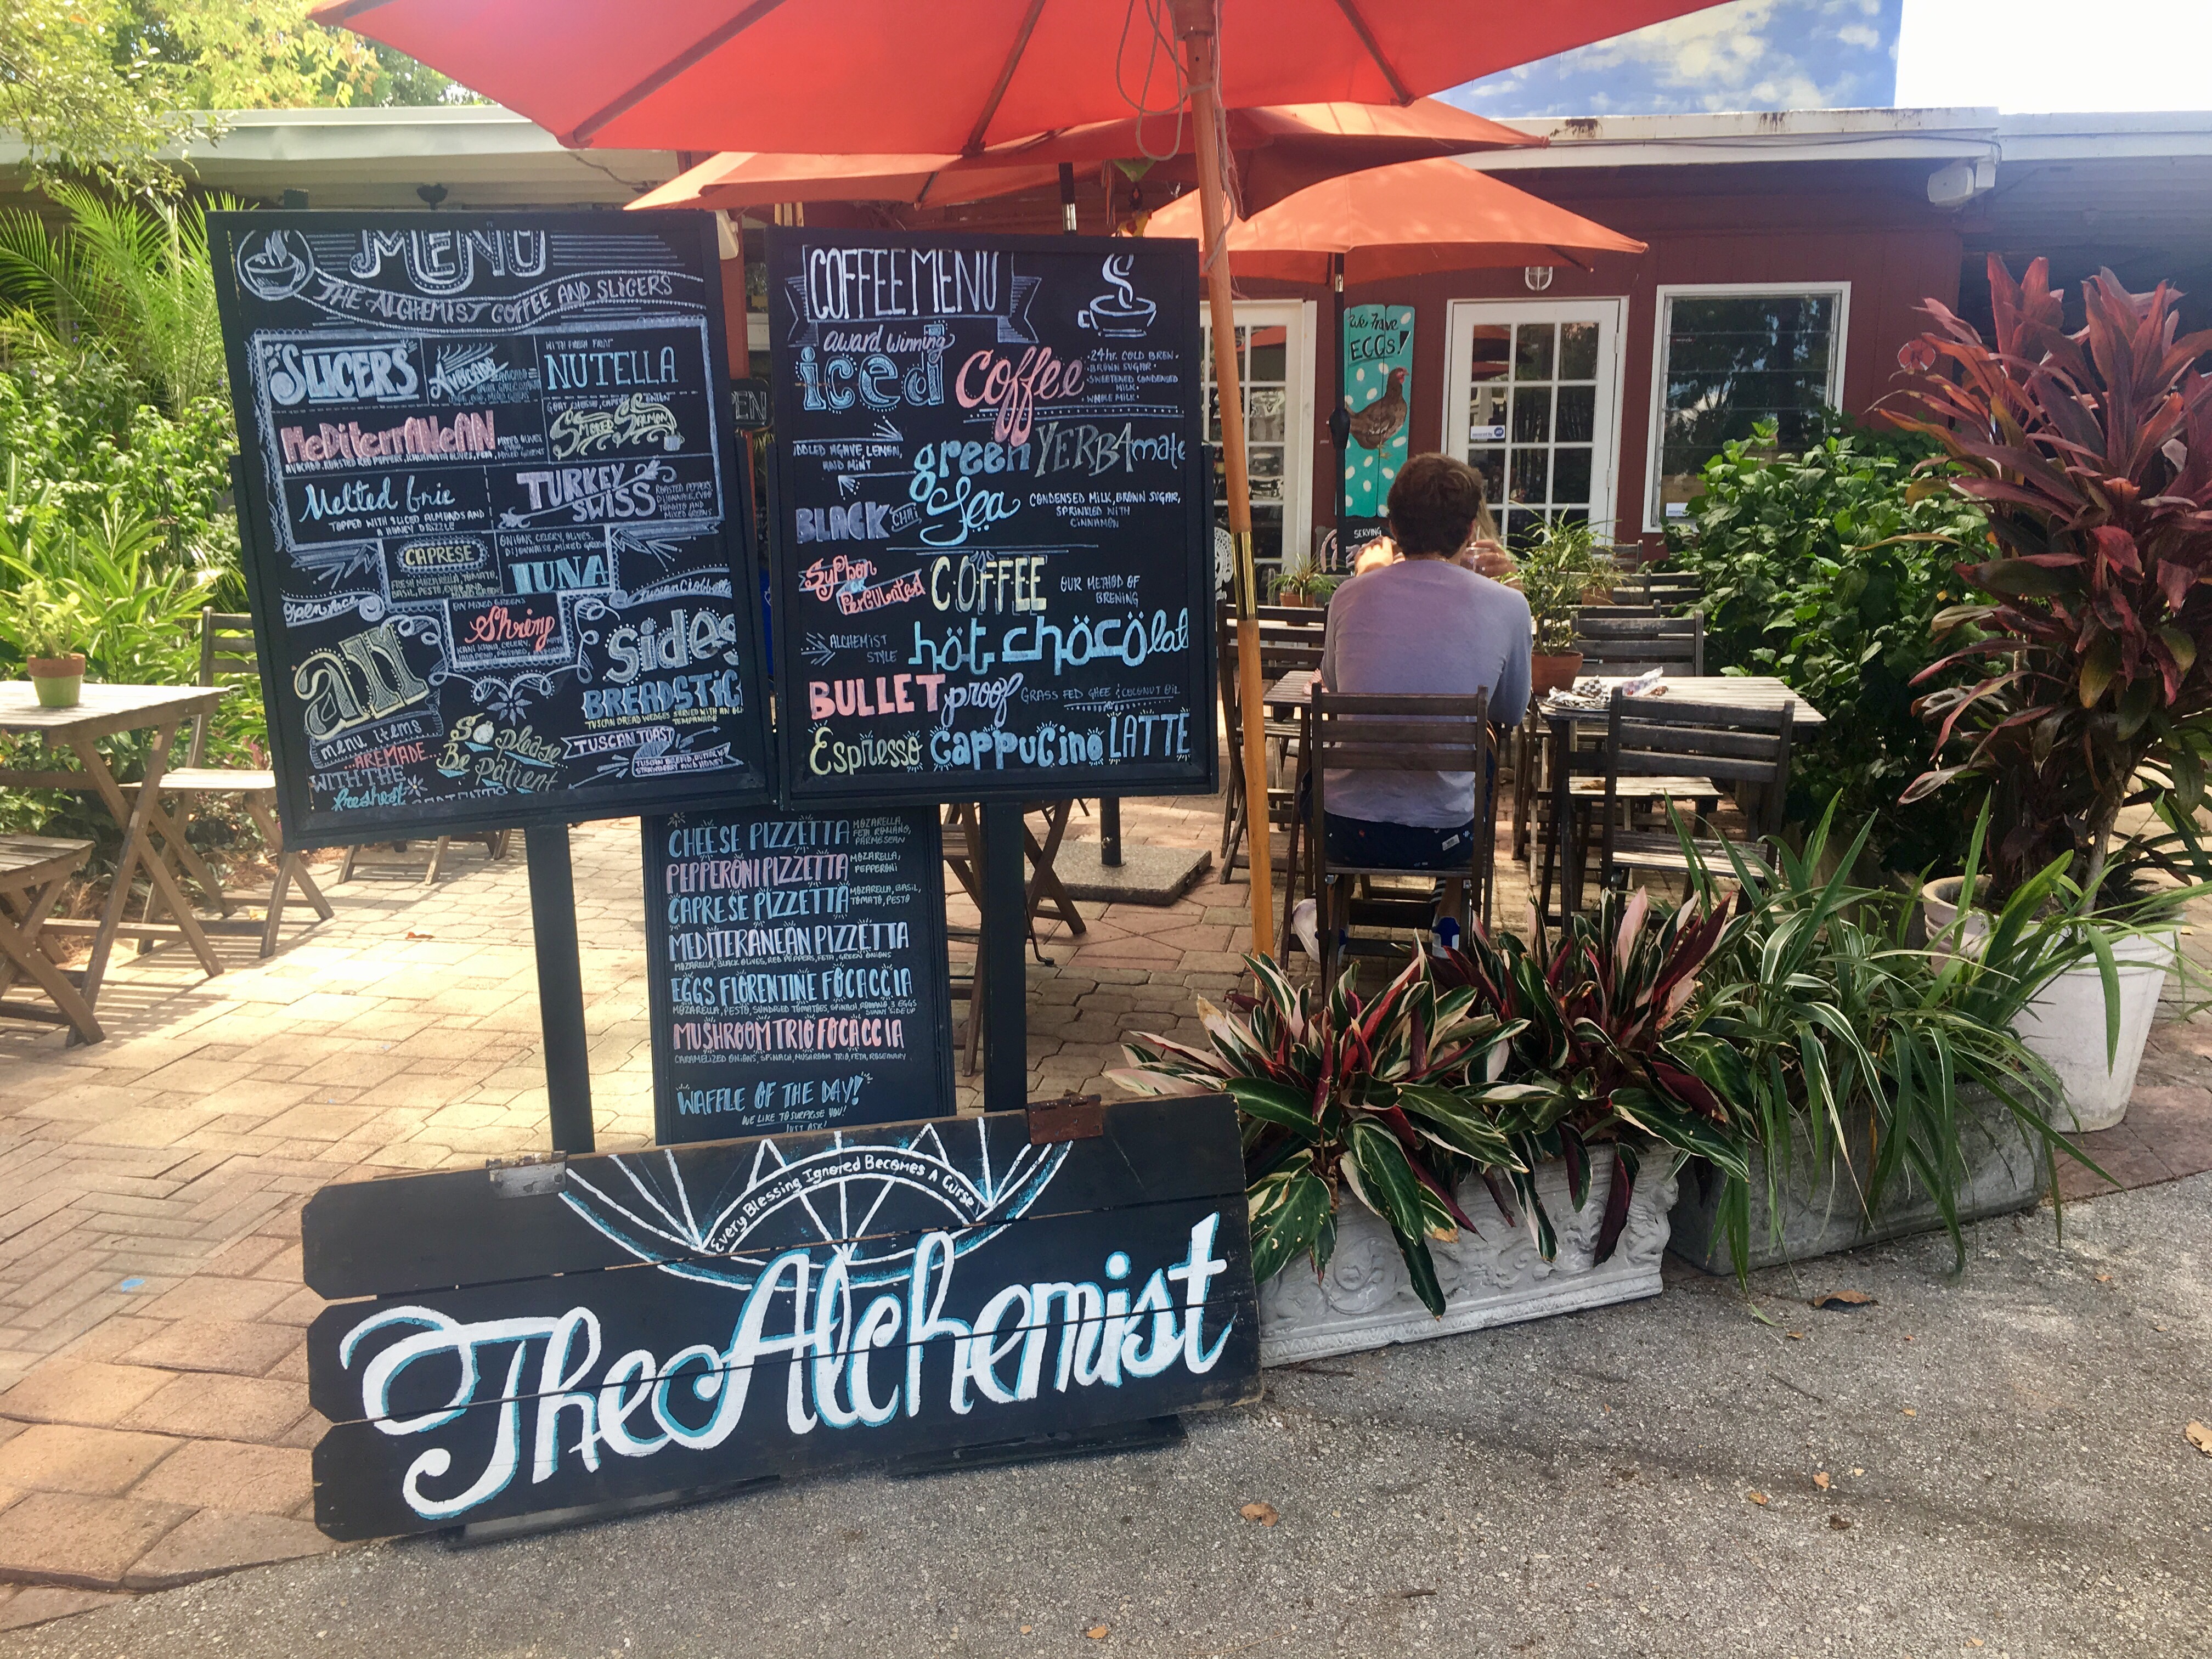 MENU
THE ALCHEMIST COFFEE AND SLICERS
SLICERS
AVOCADO
WITH FRESH FRUIT
NUTELLA
MEDITERRANEAN
MIXED GREENS
SMOKED SALMON
Melted brie
TOPPED WITH SLICED ALMONDS AND
A HONEY DRIZZLE
TURKEY
SWISS
ROASTED PEPPERS,
TOMATO AND
MIXED GREENS
CAPRESE
FRESH MOZARELLA, TOMATO,
ONIONS, CELERY, OLIVES,
DIJONNAISE, MIXED GREENS
TUNA
open face
ON MIXED GREENS
Shrimp
all
menu items
...ARE MADE
WITH THE
freshest
So please
Be patient
Sides
BREADSTIC
TUSCAN BREAD WEDGES SERVED WITH AN
TEMPANADE
TUSCAN TOAST
STRAWBERRY AND HONEY
COFFEE MENU
award winning
iced Coffee
24hr. COLD BREW
BROWN SUGAR
SWEETENED CONDENSED
MILK
WHOLE MILK
DDLED AGAVE, LEMON,
AND MINT
green
tea
YERBA mate
BLACK CHAI
CONDENSED MILK, BROWN SUGAR,
SPRINKLED WITH
CINNAMON
Syphon
OR
Perculated
COFFEE
OUR METHOD OF
BREWING
ALCHEMIST
STYLE
hot chocolat
BULLET proof
GRASS FED GHEE & COCONUT OIL
Espresso cappucino LATTE
CHEESE PIZZETTA
MOZARELLA,
FETA, ROMANO,
PARMESEAN
PEPPERONI PIZZETTA
MOZARELLA,
PEPPERONI
CAPRESE PIZZETTA
MOZARELLA, BASIL,
TOMATO, PESTO
MEDITERANEAN PIZZETTA
MOZARELLA, BLACK OLIVES, RED PEPPERS, FETA, GREEN ONIONS
EGGS FLORENTINE FOCACCIA
MOZARELLA, PESTO, SUNDRIED TOMATOES, SPINACH, ROMANO, 3 EGGS
SUNNY SIDE UP
MUSHROOM TRIO FOCACCIA
CARAMELIZED ONIONS, SPINACH, MUSHROOM TRIO, FETA, ROSEMARY
WAFFLE OF THE DAY!
WE LIKE TO SURPRISE YOU!
JUST ASK!
Every Blessing Ignored Becomes A Curse
The Alchemist
We Have
EGGS!
SERVING
PEN